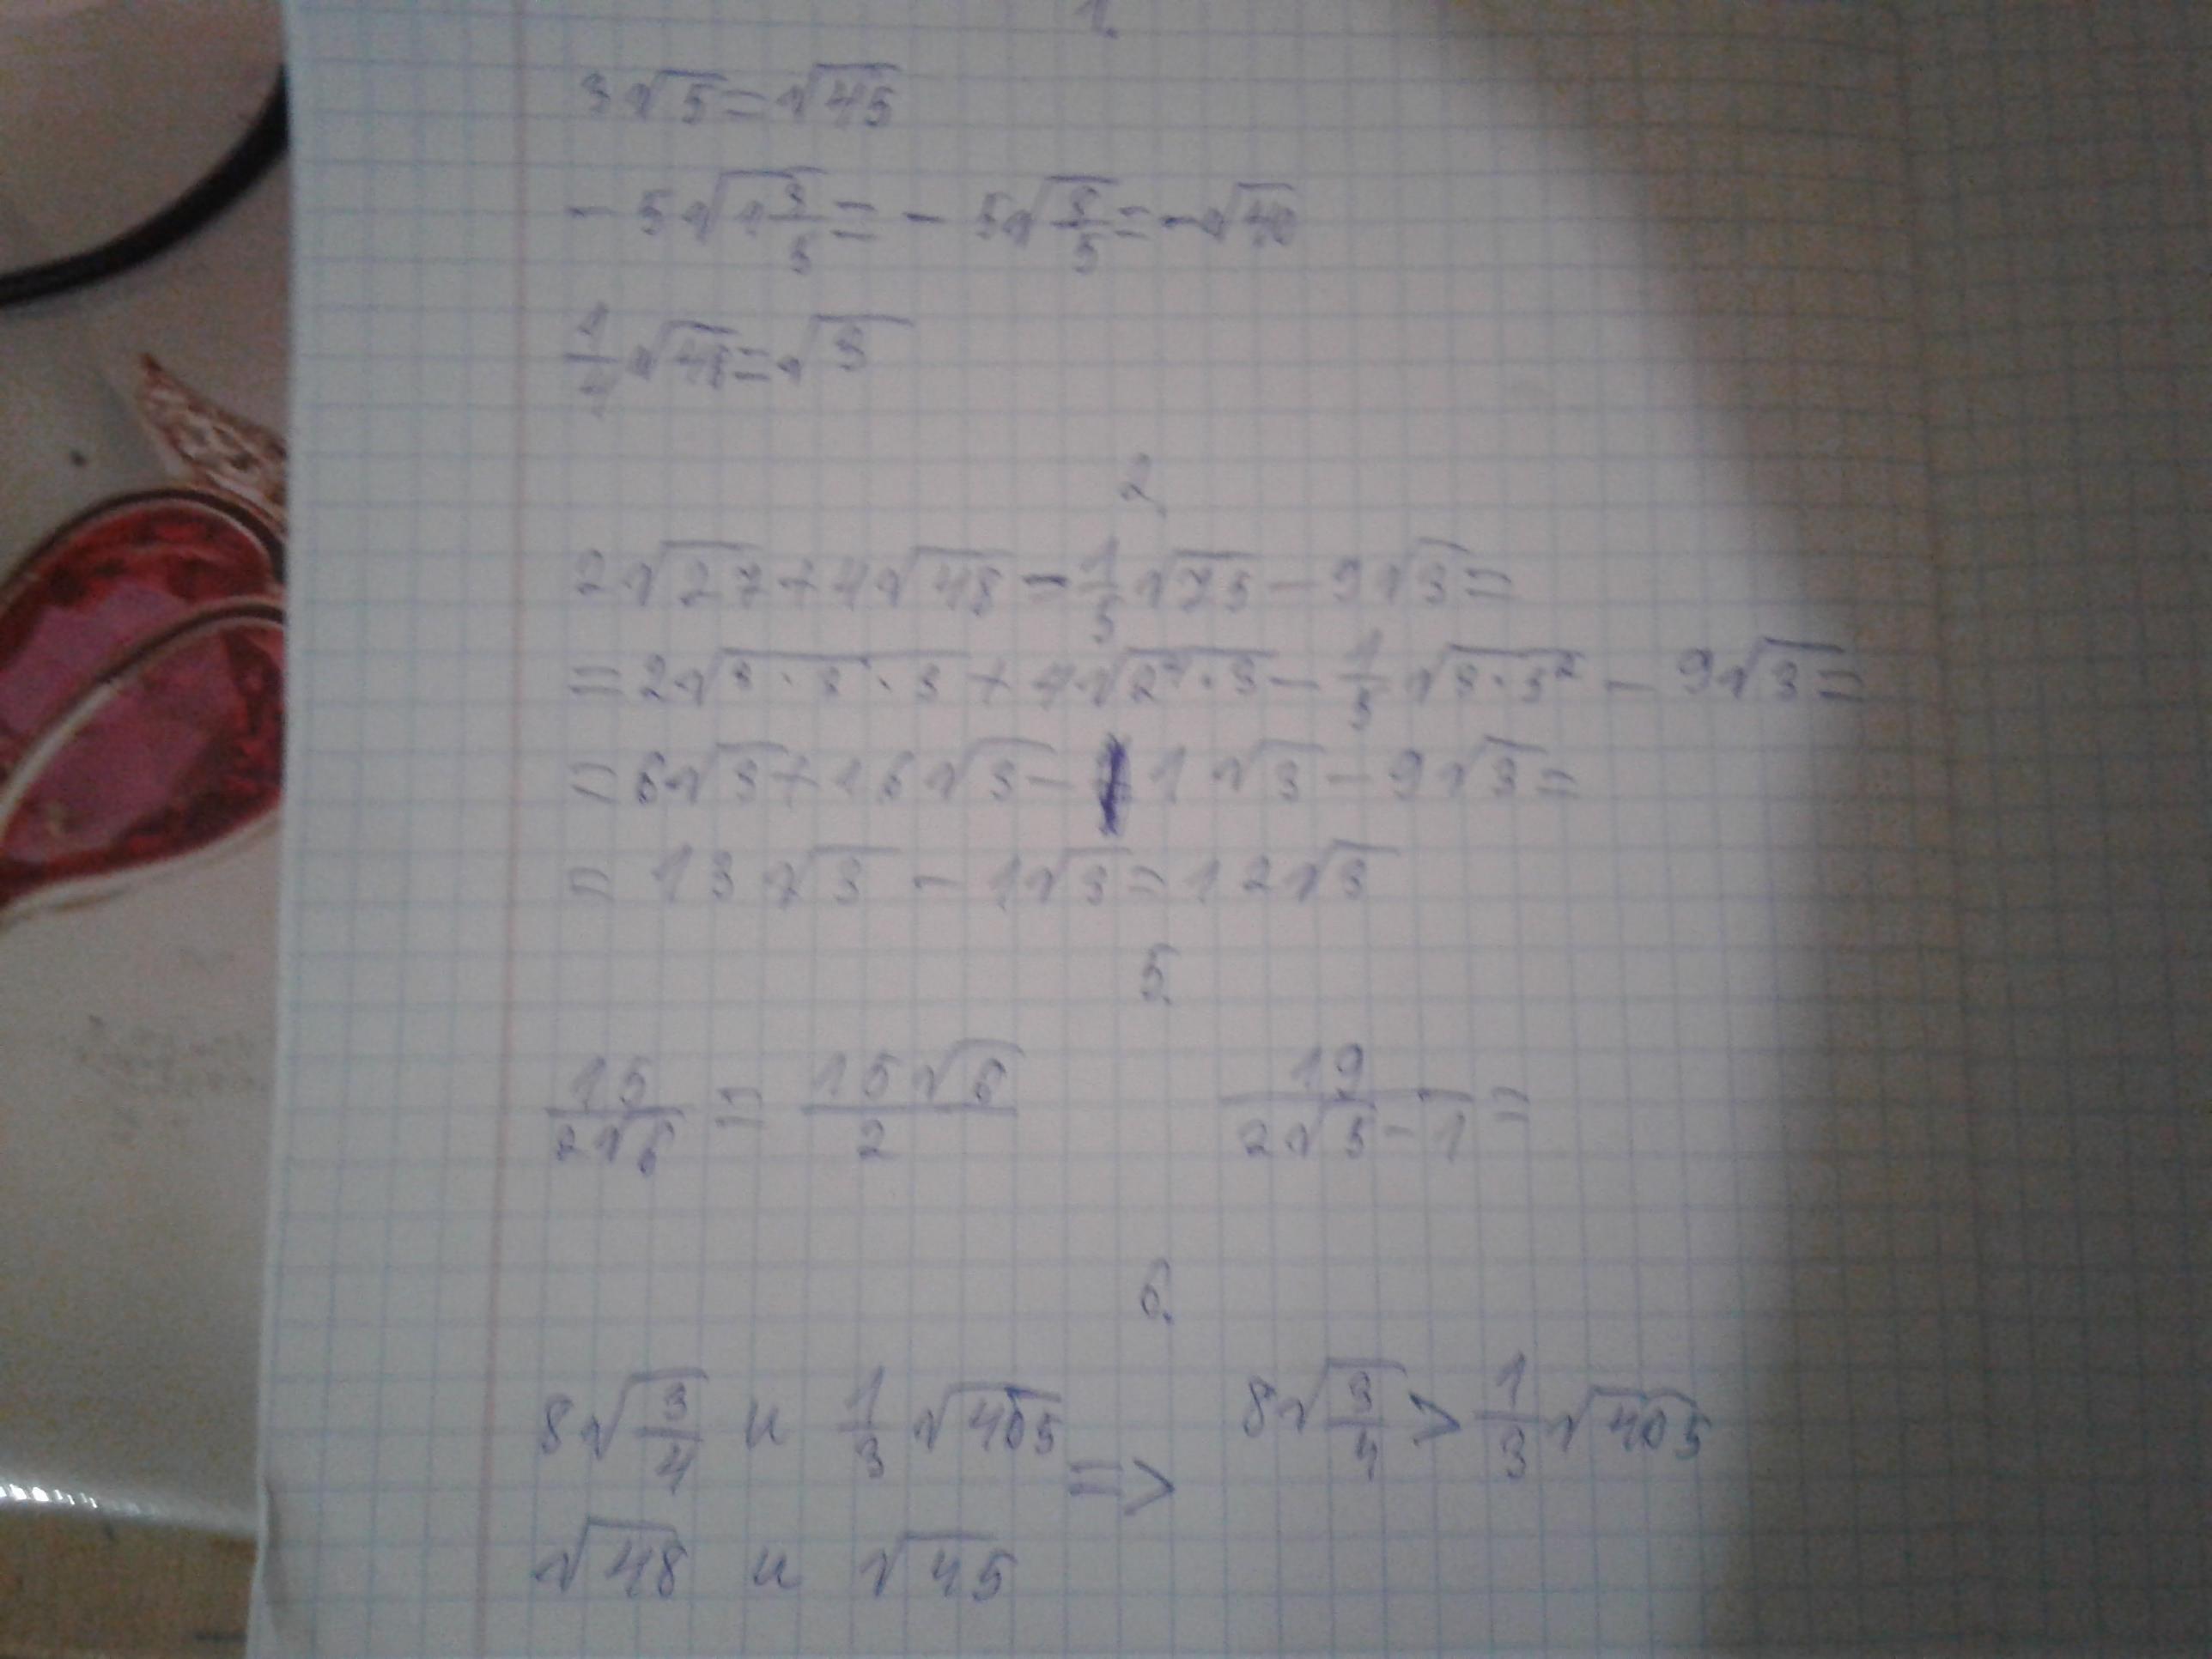 1.
3√5=√45
-5√(1 3/5)=-5√(8/5)=-√40
1/4√48=√3
2
2√27+4√48-1/5√75-9√3=
=2√(3·3·3)+4√(2⁴·3)-1/5√(3·5²)-9√3=
=6√3+16√3-1√3-9√3=
=13√3-1√3=12√3
5.
15/(2√6)=15√6/2 19/(2√5-1)=
6.
8√(3/4) и 1/3√405 => 8√(3/4)>1/3√405
√48 и √45